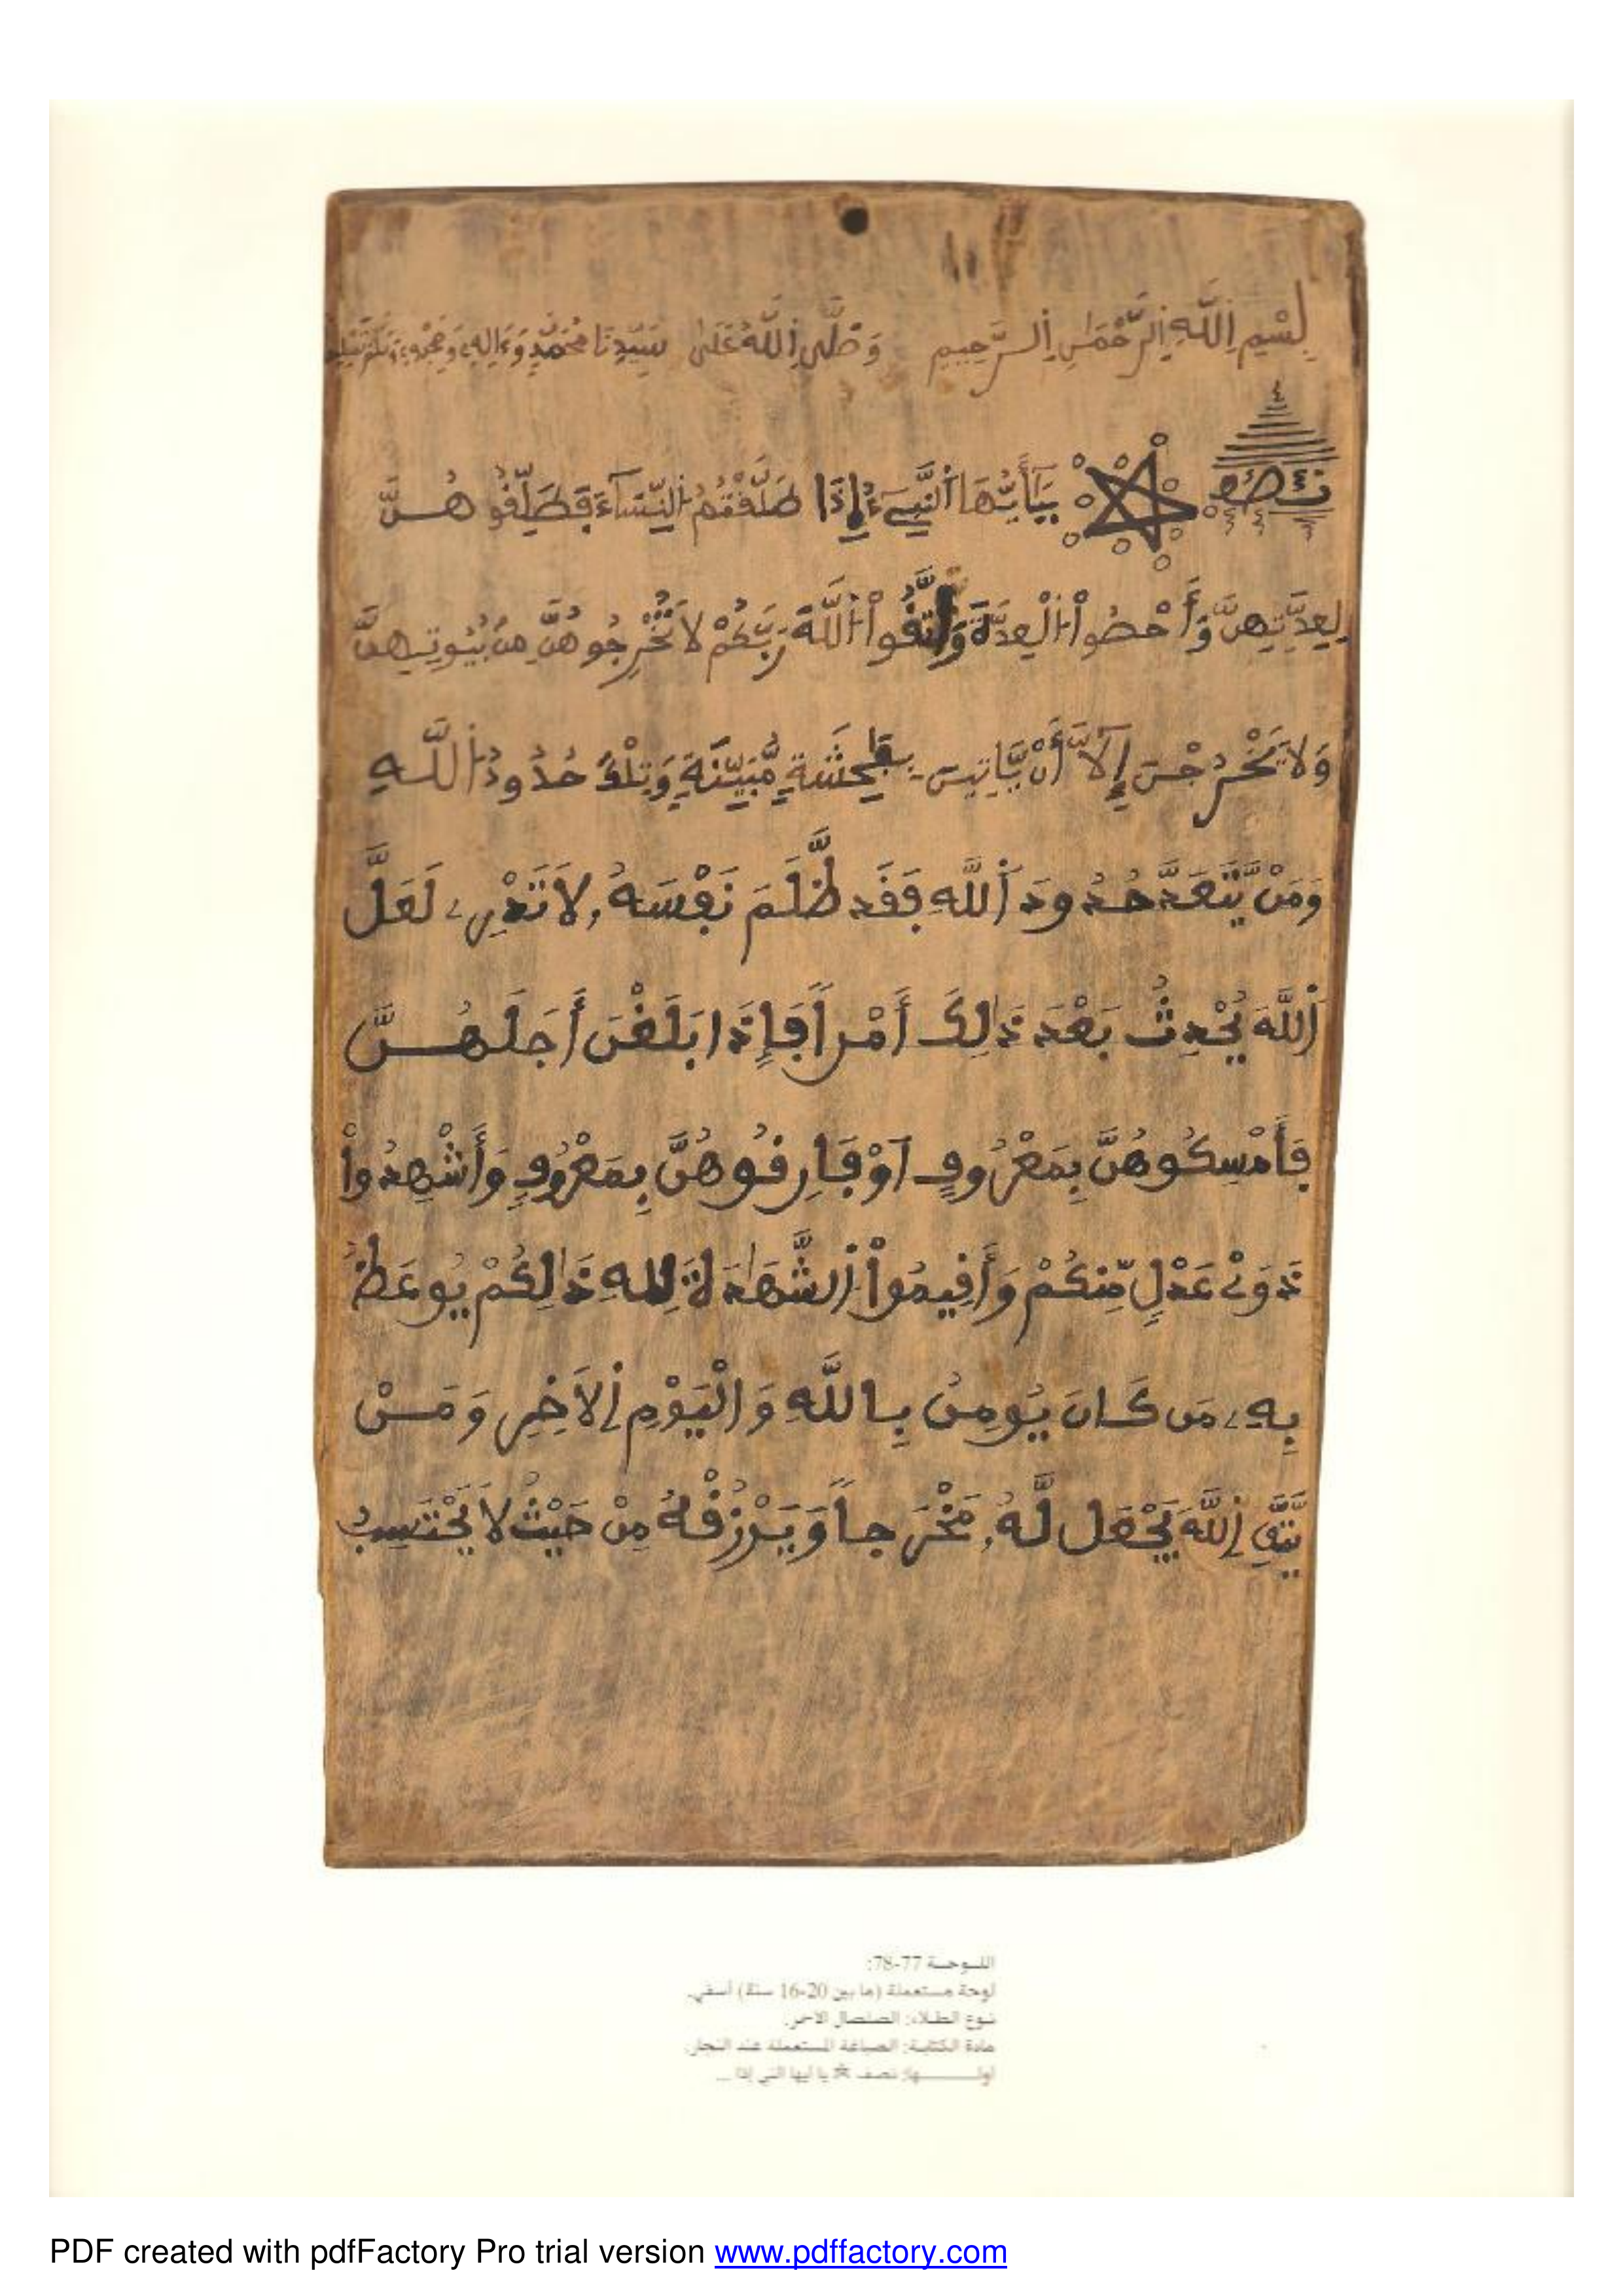 بِسْمِ اِللَّهِ اِلرَّحْمَٰنِ اِلرَّحِيمِ وَصَلَّى اَللَّهُ عَلَىٰ سَيِّدِنَا مُحَمَّدٍ وَءَالِهِ وَصَحْبِهِ وَسَلَّمَ تَسْلِيما
نصف يَٰٓأَيُّهَا اَلنَّبِيٓءُ إِذَا طَلَّقْتُمُ اُلنِّسَآءَ فَطَلِّقُوهُنَّ
لِعِدَّتِهِنَّ وَأَحْصُواْ اُلْعِدَّةَ وَاتَّقُواْ اُللَّهَ رَبَّكُمْ لَا تُخْرِجُوهُنَّ مِنۢ بُيُوتِهِنَّ
وَلَا يَخْرُجْنَ إِلَّآ أَنْ يَّاتِينَ بِفَٰحِشَةٍ مُّبَيَّنَةٍ وَتِلْكَ حُدُودُ اُللَّهِ
وَمَنْ يَّتَعَدَّ حُدُودَ اَللَّهِ فَقَد ظَّلَمَ نَفْسَهُۥ لَا تَدْرِے لَعَلَّ
اَللَّهَ يُحْدِثُ بَعْدَ ذَٰلِكَ أَمْراً فَإِذَا بَلَغْنَ أَجَلَهُنَّ
فَأَمْسِكُوهُنَّ بِمَعْرُوفٍ اَوْ فَارِقُوهُنَّ بِمَعْرُوفٍ وَأَشْهِدُواْ
ذَوَےْ عَدْلٍ مِّنكُمْ وَأَقِيمُواْ اُلشَّهَٰدَةَ لِلهِ ذَٰلِكُمْ يُوعَظُ
بِهِۦ مَن كَانَ يُومِنُ بِاللَّهِ وَالْيَوْمِ اِلَاخِرِ وَمَنْ
يَّتَّقِ اِللَّهَ يَجْعَل لَّهُۥ مَخْرَجاً وَيَرْزُقْهُ مِنْ حَيْثُ لَا يَحْتَسِبُ
اللـوحـة 77-78:
لوحة مستعملة (ما بين 20-16 سنة) أسفي.
نـوع الطـلاء: الصلصال الأحمر.
مادة الكتابـة: الصباغة المستعملة عند النجار.
أولــــها: نصف ☆ يا أيها النبي إذا ...
PDF created with pdfFactory Pro trial version www.pdffactory.com